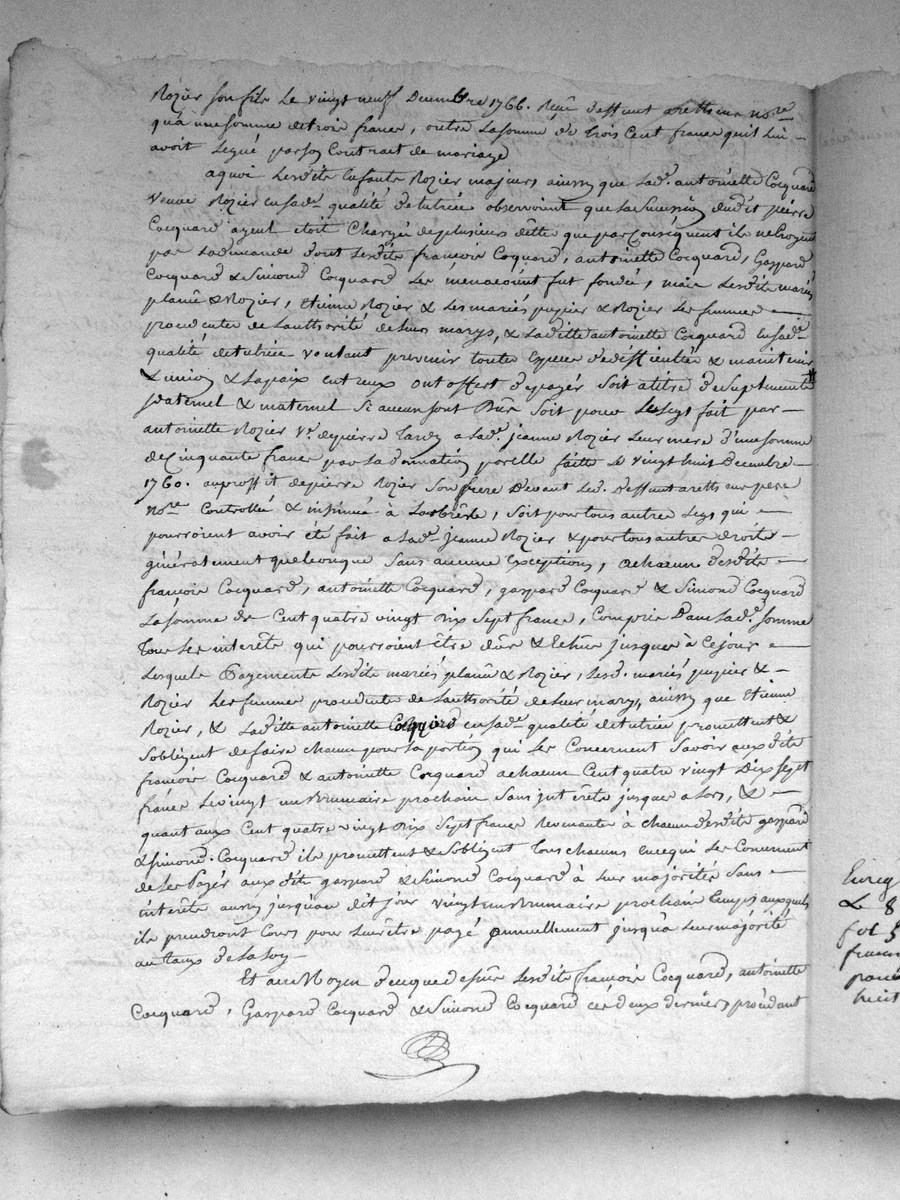 Rozier son fils le vingt neuff Decembre 1766. Reçu deffunt aretts me no.re
qua une somme de trois francs, outre la somme de trois Cent francs quil lui
avoit legué par son Contract de mariage
a quoi lesdits Enfants Rozier majeurs ainssy que lad.e antoinette Cocquard
Veuve Rozier en sad.e qualité de tutrice observoint que la succession dudit pierre
Cocquard ayent étoit Chargée de plusieurs dette que par Conséquent ils ne Croyent
pas la demande dont lesdits francois Cocquard, antoinette Cocquard, Gaspard
Cocquard & Simond Cocquard les menacoint fut fondé, mais lesdits mariés
planu & Rozier, Etienne Rozier & les mariés pupier & Rozier les femmes
procedentes de lauthorité de leurs marys, & laditte antoinette Cocquard en sad.e
qualité de tutrice voulant prevenir toutte Espece de difficultés & maintenir
& union & la paix entreux ont offert de payér soit a titre de supléments
paternel & maternel si aucun sont dûs soit pour le legs fait par
antoinette Rozier V.e de pierre tardy a lad.e jeanne Rozier leur mere d'une somme
de Cinquante francs par la donnation par elle faitte le vingt huit Decembre
1760. au proffit de pierre Rozier son frere devant led. deffunt aretts
no.re Controllée & insinuée à Lasbresle, soit pour tous autres legs qui
pourroient avoir été fait a lad.e Jeanne Rozier & pour tous autres droits
généralement quelconque sans aucune Exceptions, a chacun desdits
francois Cocquard, antoinette Cocquard, gaspard Cocquard & Simond Cocquard
la somme de Cent quatre vingt dix sept francs, Compris dans lad.e somme
tous les interêts qui pourroient être dûs & Echus jusques à Ce jour
lesquels Payements lesdits mariés planu & Rozier, lesd. mariés pupier &
Rozier les femmes procedentes de lauthorité de leur mary, ainssy que Etienne
Rozier, & laditte antoinette Cocquard en sad.e qualité de tutrice promettent &
sobligent de faire chacun pour la portion qui les Concernent Savoir auxdits
francois Cocquard & antoinette Cocquard a chacun Cent quatre vingt Dix sept
francs le vingt un Brumaire prochain sans interêts jusques a lors, &
quant aux Cent quatre vingt dix sept francs revenants à chacun desdits gaspard
& simond Cocquard ils promettent & sobligent tous chacuns en ce qui les Concernent
de les Payér auxdits gaspard & simond Cocquard à leur majorités sans
interêts aussy jusquau dit jour vingt un Brumaire prochain temps auxquels
ils prendront Cours pour leur être payé annuellement jusqu'a leur majorité
au taux de la loy
Et au Moyen de ce que dessus lesdits francois Cocquard, antoinette
Cocquard, Gaspard Cocquard & Simond Cocquard ces deux derniers procédant
Enreg
Le 8
fol
francs
huit